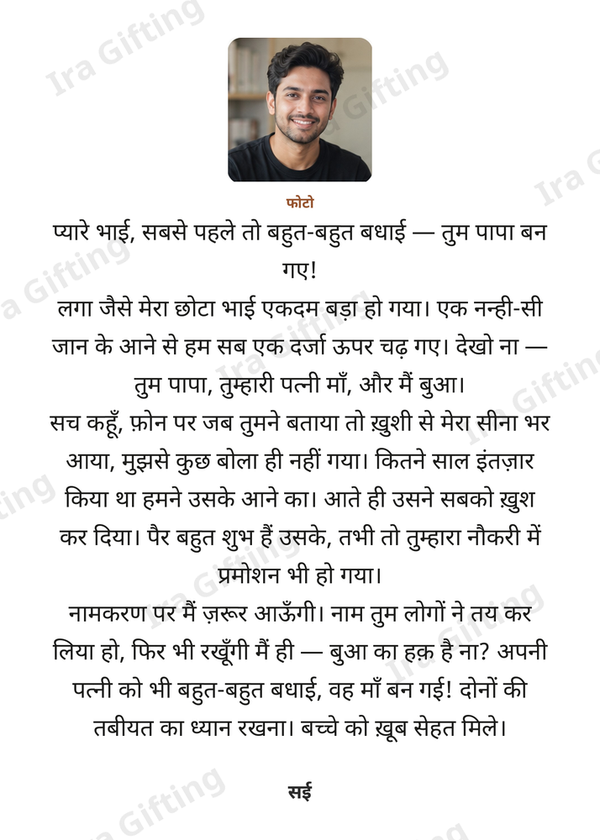 फोटो
प्यारे भाई, सबसे पहले तो बहुत-बहुत बधाई — तुम पापा बन
गए!
लगा जैसे मेरा छोटा भाई एकदम बड़ा हो गया। एक नन्ही-सी
जान के आने से हम सब एक दर्जा ऊपर चढ़ गए। देखो ना —
तुम पापा, तुम्हारी पत्नी माँ, और मैं बुआ।
सच कहूँ, फ़ोन पर जब तुमने बताया तो ख़ुशी से मेरा सीना भर
आया, मुझसे कुछ बोला ही नहीं गया। कितने साल इंतज़ार
किया था हमने उसके आने का। आते ही उसने सबको ख़ुश
कर दिया। पैर बहुत शुभ हैं उसके, तभी तो तुम्हारा नौकरी में
प्रमोशन भी हो गया।
नामकरण पर मैं ज़रूर आऊँगी। नाम तुम लोगों ने तय कर
लिया हो, फिर भी रखूँगी मैं ही — बुआ का हक़ है ना? अपनी
पत्नी को भी बहुत-बहुत बधाई, वह माँ बन गई! दोनों की
तबीयत का ध्यान रखना। बच्चे को ख़ूब सेहत मिले।
सई
Ira Gifting